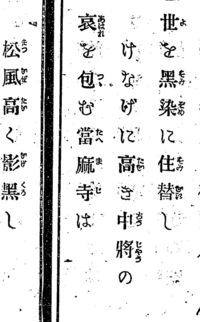 世を黑染に住替し
けなげに高き中將の
哀を包む當麻寺は
松風高く影黑し